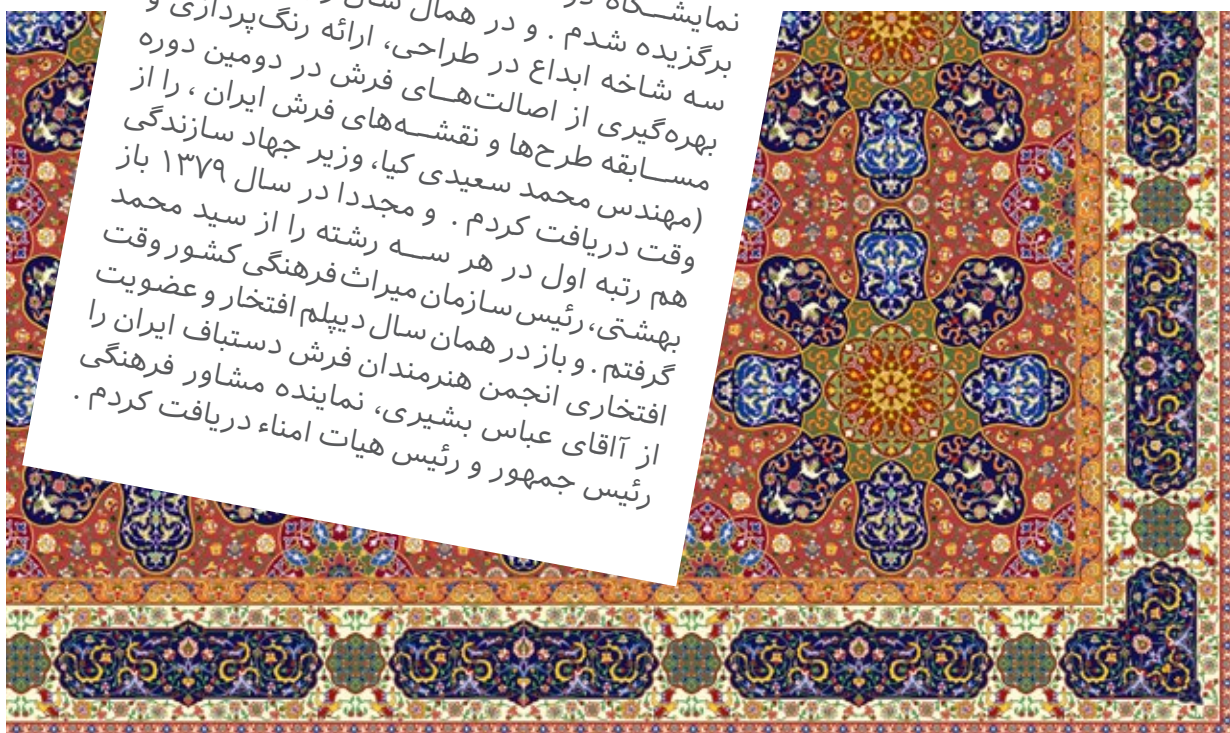 نمایشگاه
برگزیده شدم . و در همال سال
سه شاخه ابداع در طراحی، ارائه رنگ‌پردازی و
بهره‌گیری از اصالت‌های فرش در دومین دوره
مسابقه طرح‌ها و نقشه‌های فرش ایران ، را از
(مهندس محمد سعیدی کیا، وزیر جهاد سازندگی
وقت دریافت کردم . و مجددا در سال ۱۳۷۹ باز
هم رتبه اول در هر سه رشته را از سید محمد
بهشتی، رئیس سازمان میراث فرهنگی کشور وقت
گرفتم . و باز در همان سال دیپلم افتخار و عضویت
افتخاری انجمن هنرمندان فرش دستباف ایران را
از آاقای عباس بشیری، نماینده مشاور فرهنگی
رئیس جمهور و رئیس هیات امناء دریافت کردم .